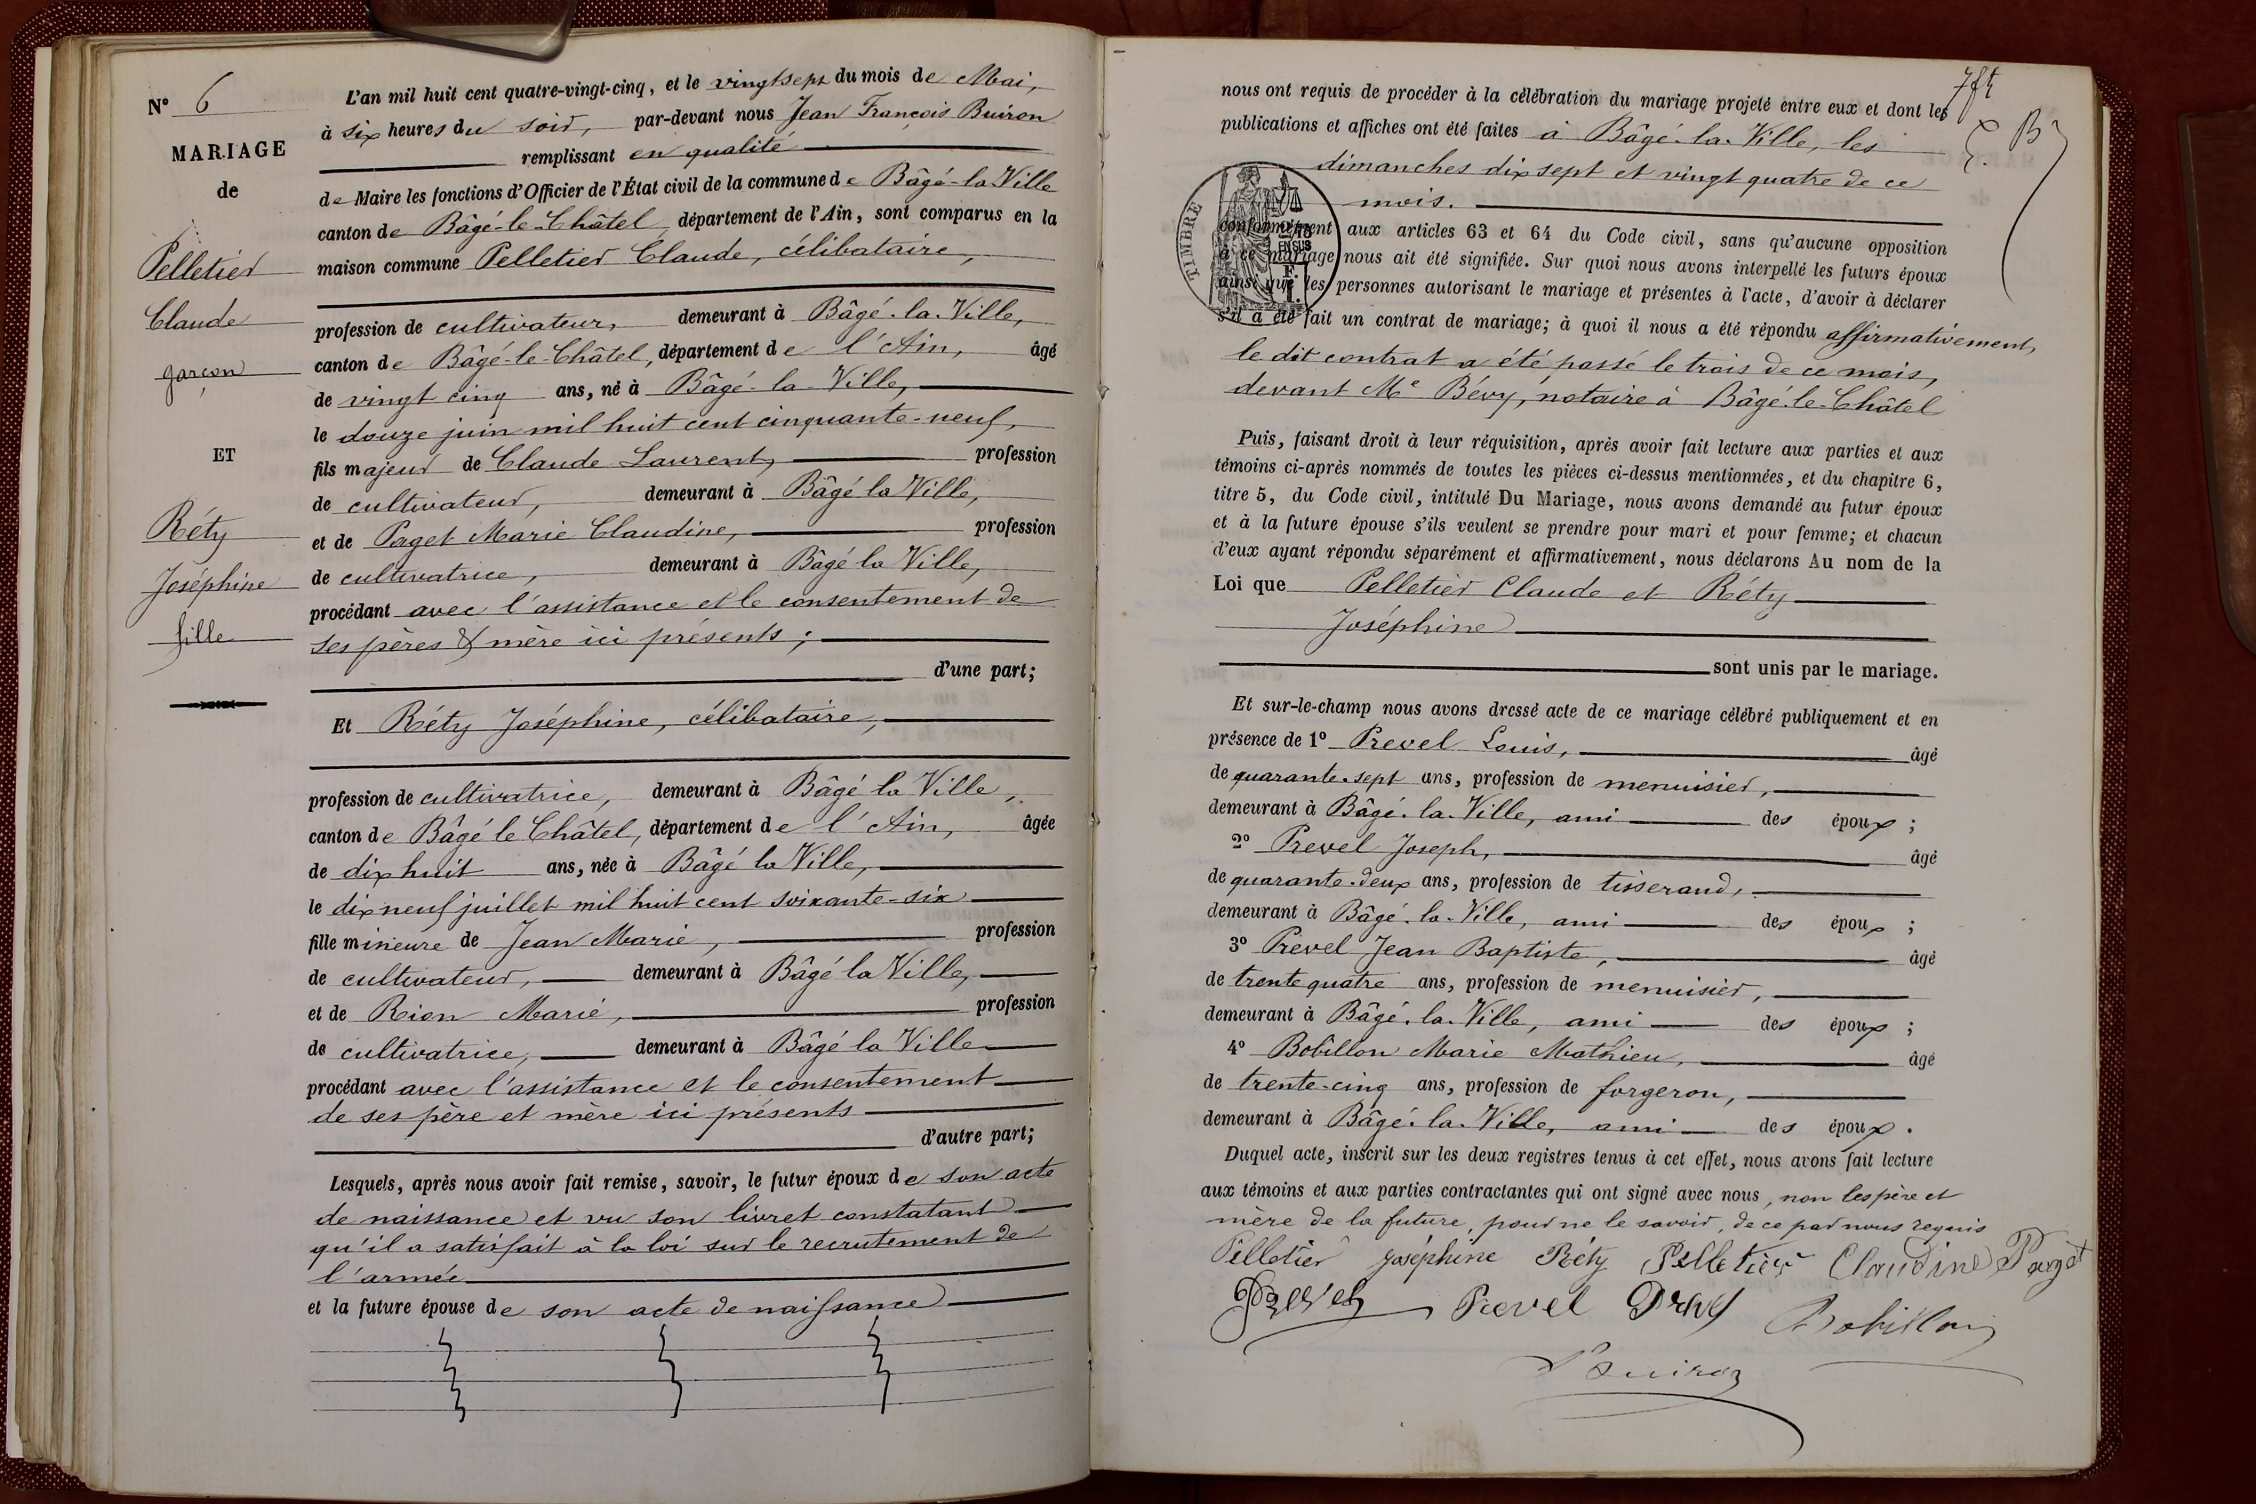 N° 6
MARIAGE
de
Pelletier
Claude
garçon
ET
Réty
Joséphine
fille
L'an mil huit cent quatre-vingt-cinq, et le vingt sept du mois de Mai,
à six heures du soir, par-devant nous Jean François Buiron
remplissant en qualité
de Maire les fonctions d'Officier de l'État civil de la commune de Bâgé-la-Ville
canton de Bâgé-le-Châtel, département de l'Ain, sont comparus en la
maison commune Pelletier Claude, célibataire,
profession de cultivateur, demeurant à Bâgé-la-Ville,
canton de Bâgé-le-Châtel, département de l'Ain, âgé
de vingt cinq ans, né à Bâgé-la-Ville,
le douze juin mil huit cent cinquante-neuf,
fils majeur de Claude Laurent, profession
de cultivateur, demeurant à Bâgé la Ville,
et de Paget Marie Claudine, profession
de cultivatrice, demeurant à Bâgé la Ville,
procédant avec l'assistance et le consentement de
ses pères & mère ici présents;
d'une part;
Et Réty Joséphine, célibataire,
profession de cultivatrice, demeurant à Bâgé la Ville,
canton de Bâgé le Châtel, département de l'Ain, âgée
de dix huit ans, née à Bâgé la Ville,
le dix neuf juillet mil huit cent soixante-six
fille mineure de Jean Marie, profession
de cultivateur, demeurant à Bâgé la Ville,
et de Rion Marie, profession
de cultivatrice, demeurant à Bâgé la Ville
procédant avec l'assistance et le consentement
de ses père et mère ici présents
d'autre part;
Lesquels, après nous avoir fait remise, savoir, le futur époux de son acte
de naissance et vu son livret constatant
qu'il a satisfait à la loi sur le recrutement de
l'armée
et la future épouse de son acte de naissance
nous ont requis de procéder à la célébration du mariage projeté entre eux et dont les
publications et affiches ont été faites à Bâgé-la-Ville, les
dimanches dix sept et vingt quatre de ce
mois.
TIMBRE
EN SUS
conformément aux articles 63 et 64 du Code civil, sans qu'aucune opposition
à ce mariage nous ait été signifiée. Sur quoi nous avons interpellé les futurs époux
ainsi que les personnes autorisant le mariage et présentes à l'acte, d'avoir à déclarer
s'il a été fait un contrat de mariage; à quoi il nous a été répondu affirmativement,
le dit contrat a été passé le trois de ce mois,
devant Me Bévy, notaire à Bâgé-le-Châtel
Puis, faisant droit à leur réquisition, après avoir fait lecture aux parties et aux
témoins ci-après nommés de toutes les pièces ci-dessus mentionnées, et du chapitre 6,
titre 5, du Code civil, intitulé Du Mariage, nous avons demandé au futur époux
et à la future épouse s'ils veulent se prendre pour mari et pour femme; et chacun
d'eux ayant répondu séparément et affirmativement, nous déclarons Au nom de la
Loi que Pelletier Claude et Réty
Joséphine
sont unis par le mariage.
Et sur-le-champ nous avons dressé acte de ce mariage célébré publiquement et en
présence de 1° Prevel Louis, âgé
de quarante-sept ans, profession de menuisier,
demeurant à Bâgé-la-Ville, ami des époux;
2° Prevel Joseph, âgé
de quarante-deux ans, profession de tisserand,
demeurant à Bâgé-la-Ville, ami des époux;
3° Prevel Jean Baptiste, âgé
de trente quatre ans, profession de menuisier,
demeurant à Bâgé-la-Ville, ami des époux;
4° Bobillon Marie Mathieu, âgé
de trente-cinq ans, profession de forgeron,
demeurant à Bâgé-la-Ville, ami des époux.
Duquel acte, inscrit sur les deux registres tenus à cet effet, nous avons fait lecture
aux témoins et aux parties contractantes qui ont signé avec nous, non les père et
mère de la future, pour ne le savoir, de ce par nous requis
Pelletier Joséphine Réty Pelletier Claudine Paget
Prevel Prevel Prevel Bobillon
Buiron